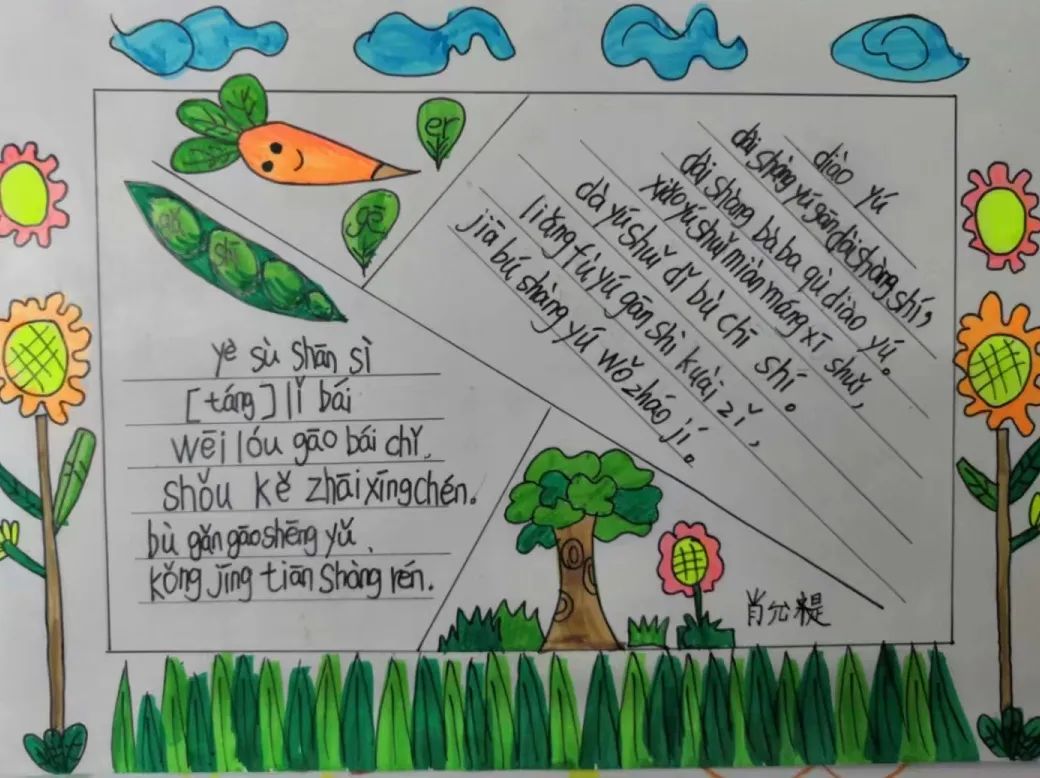 er
gē
shī
yè sù shān sì
[táng] lǐ bái
wēi lóu gāo bái chǐ,
shǒu kě zhāi xīng chén.
bù gǎn gāo shēng yǔ,
kǒng jīng tiān shàng rén.
diào yú
dài shàng yú gān dài shàng shí,
dài shàng bà ba qù diào yú。
xiǎo yú shuǐ miàn máng xī shuǐ,
dà yú shuǐ dǐ bù chī shí。
liǎng fù yú gān shì kuài zǐ,
jiā bú shàng yú wǒ zháo jí。
肖允